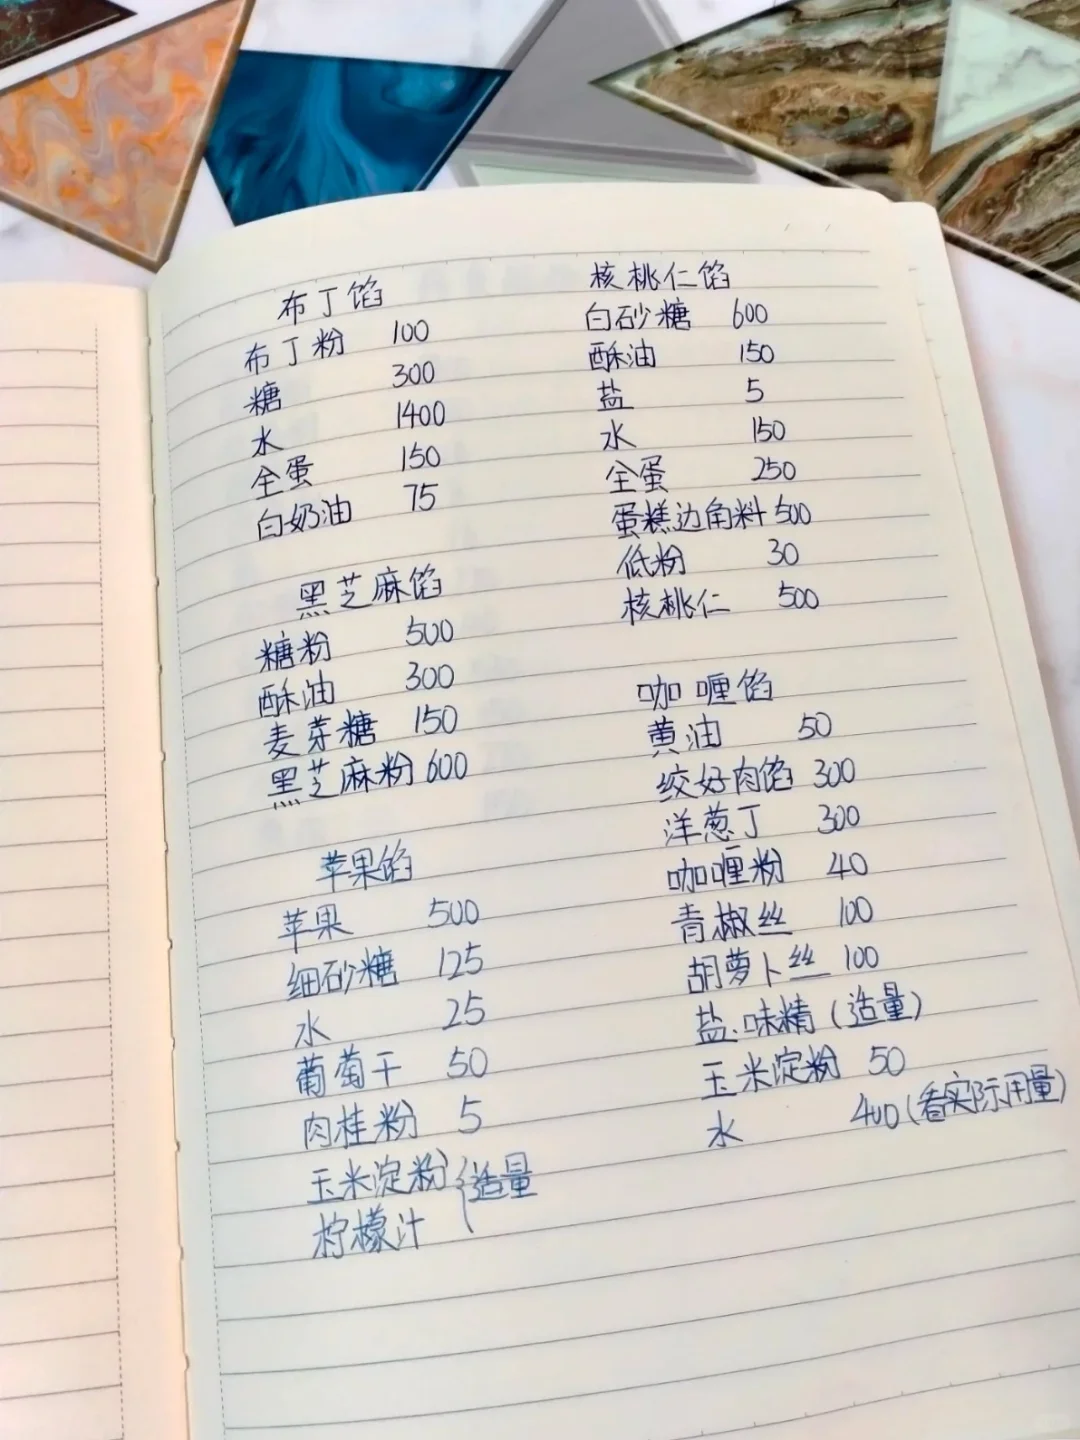 布丁馅
布丁粉 100
糖 300
水 1400
全蛋 150
白奶油 75
黑芝麻馅
糖粉 500
酥油 300
麦芽糖 150
黑芝麻粉 600
苹果馅
苹果 500
细砂糖 125
水 25
葡萄干 50
肉桂粉 5
玉米淀粉
柠檬汁 } 适量
核桃仁馅
白砂糖 600
酥油 150
盐 5
水 150
全蛋 250
蛋糕边角料 500
低粉 30
核桃仁 500
咖喱馅
黄油 50
绞好肉馅 300
洋葱丁 300
咖喱粉 40
青椒丝 100
胡萝卜丝 100
盐.味精(适量)
玉米淀粉 50
水 400(看实际用量)